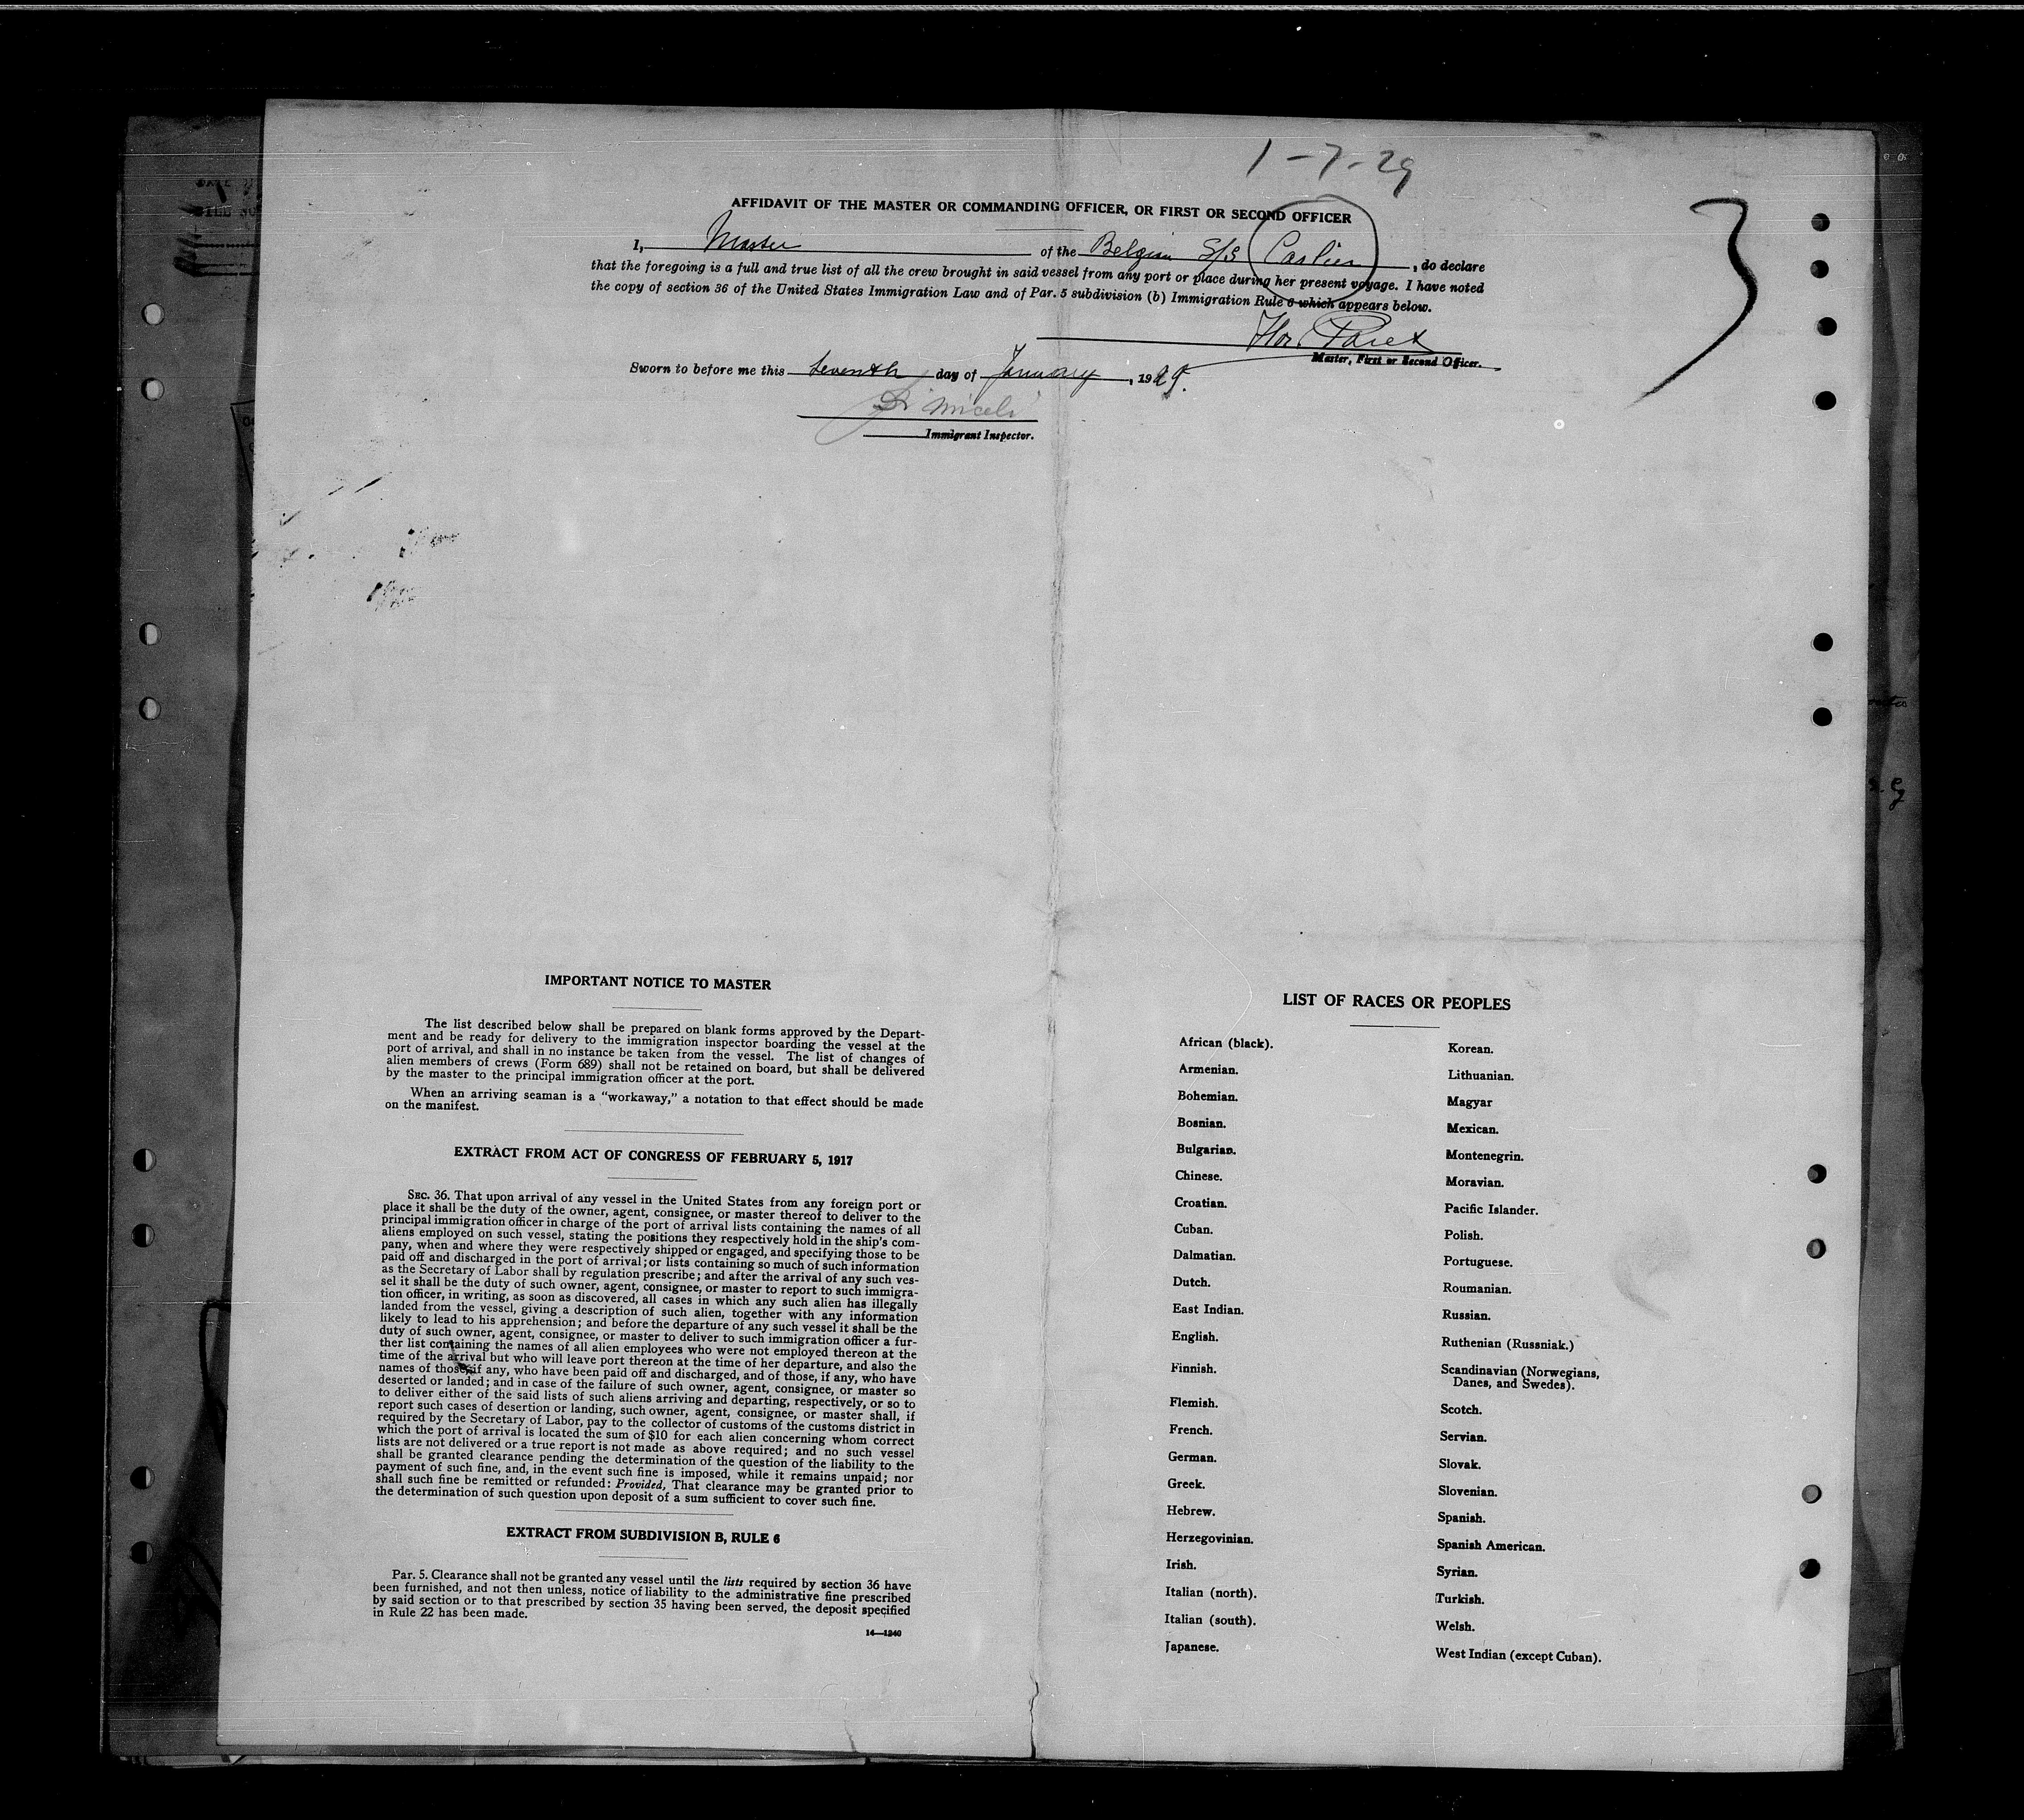 1-7-29
3
AFFIDAVIT OF THE MASTER OR COMMANDING OFFICER, OR FIRST OR SECOND OFFICER
I, Master of the Belgian S/S Carlier, do declare
that the foregoing is a full and true list of all the crew brought in said vessel from any port or place during her present voyage. I have noted
the copy of section 36 of the United States Immigration Law and of Par. 5 subdivision (b) Immigration Rule 6 which appears below.
Master, First or Second Officer.
Sworn to before me this seventh day of January, 1929.
Immigrant Inspector.
IMPORTANT NOTICE TO MASTER
The list described below shall be prepared on blank forms approved by the Depart-
ment and be ready for delivery to the immigration inspector boarding the vessel at the
port of arrival, and shall in no instance be taken from the vessel. The list of changes of
alien members of crews (Form 689) shall not be retained on board, but shall be delivered
by the master to the principal immigration officer at the port.
When an arriving seaman is a "workaway," a notation to that effect should be made
on the manifest.
EXTRACT FROM ACT OF CONGRESS OF FEBRUARY 5, 1917
SEC. 36. That upon arrival of any vessel in the United States from any foreign port or
place it shall be the duty of the owner, agent, consignee, or master thereof to deliver to the
principal immigration officer in charge of the port of arrival lists containing the names of all
aliens employed on such vessel, stating the positions they respectively hold in the ship's com-
pany, when and where they were respectively shipped or engaged, and specifying those to be
paid off and discharged in the port of arrival; or lists containing so much of such information
as the Secretary of Labor shall by regulation prescribe; and after the arrival of any such ves-
sel it shall be the duty of such owner, agent, consignee, or master to report to such immigra-
tion officer, in writing, as soon as discovered, all cases in which any such alien has illegally
landed from the vessel, giving a description of such alien, together with any information
likely to lead to his apprehension; and before the departure of any such vessel it shall be the
duty of such owner, agent, consignee, or master to deliver to such immigration officer a fur-
ther list containing the names of all alien employees who were not employed thereon at the
time of the arrival but who will leave port thereon at the time of her departure, and also the
names of those, if any, who have been paid off and discharged, and of those, if any, who have
deserted or landed; and in case of the failure of such owner, agent, consignee, or master so
to deliver either of the said lists of such aliens arriving and departing, respectively, or so to
report such cases of desertion or landing, such owner, agent, consignee, or master shall, if
required by the Secretary of Labor, pay to the collector of customs of the customs district in
which the port of arrival is located the sum of $10 for each alien concerning whom correct
lists are not delivered or a true report is not made as above required; and no such vessel
shall be granted clearance pending the determination of the question of the liability to the
payment of such fine, and, in the event such fine is imposed, while it remains unpaid; nor
shall such fine be remitted or refunded: Provided, That clearance may be granted prior to
the determination of such question upon deposit of a sum sufficient to cover such fine.
EXTRACT FROM SUBDIVISION B, RULE 6
Par. 5. Clearance shall not be granted any vessel until the lists required by section 36 have
been furnished, and not then unless, notice of liability to the administrative fine prescribed
by said section or to that prescribed by section 35 having been served, the deposit specified
in Rule 22 has been made.
14—1240
LIST OF RACES OR PEOPLES
African (black).
Armenian.
Bohemian.
Bosnian.
Bulgarian.
Chinese.
Croatian.
Cuban.
Dalmatian.
Dutch.
East Indian.
English.
Finnish.
Flemish.
French.
German.
Greek.
Hebrew.
Herzegovinian.
Irish.
Italian (north).
Italian (south).
Japanese.
Korean.
Lithuanian.
Magyar
Mexican.
Montenegrin.
Moravian.
Pacific Islander.
Polish.
Portuguese.
Roumanian.
Russian.
Ruthenian (Russniak.)
Scandinavian (Norwegians,
Danes, and Swedes).
Scotch.
Servian.
Slovak.
Slovenian.
Spanish.
Spanish American.
Syrian.
Turkish.
Welsh.
West Indian (except Cuban).